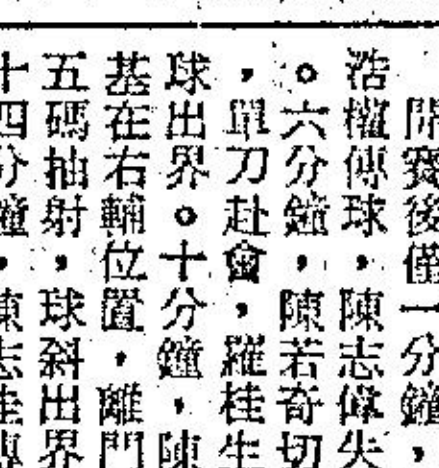 開賽後僅一分鐘，
浩權傳球，陳志偉失
。六分鐘，陳若奇切
，單刀赴會，羅桂生
球出界。十分鐘，陳
基在右輔位置，離門
五碼抽射，球斜出界
十四分鐘，陳志桂傳